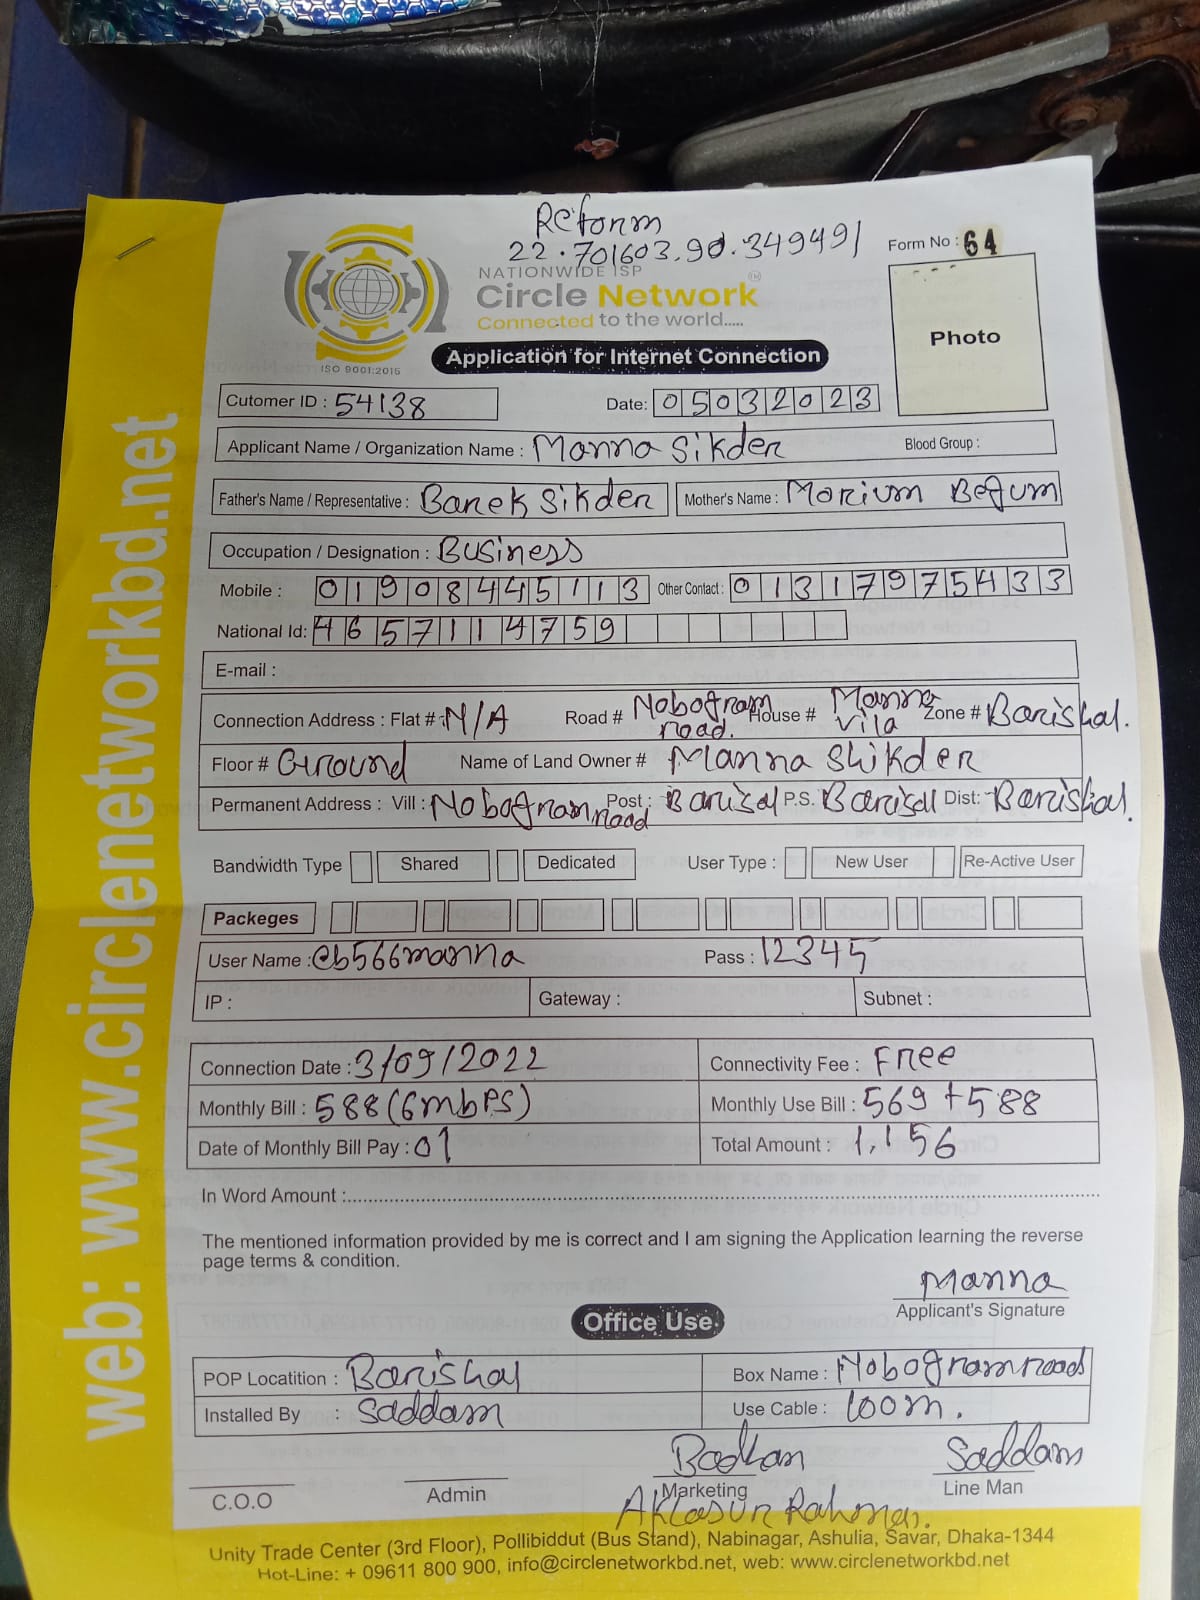 Reform
22.701603,90.349491
Form No : 64
NATIONWIDE ISP
Circle Network
Connected to the world.....
ISO 9001:2015
Photo
Application for Internet Connection
Cutomer ID : 54138 Date: 05032023
Applicant Name / Organization Name : Manna Sikder Blood Group :
Father's Name / Representative : Barek Sikder Mother's Name : Morium Begum
Occupation / Designation : Business
Mobile : 01908445113 Other Contact : 01317975433
National Id: 4657114759
E-mail :
Connection Address : Flat # N/A Road # Nobogram road. House # Manna Vila Zone # Barishal.
Floor # Ground Name of Land Owner # Manna Shikder
Permanent Address : Vill : Nobogram road Post : Barisal P.S. Barisal Dist: Barishal.
Bandwidth Type Shared Dedicated User Type : New User Re-Active User
Packeges
User Name : cb566manna Pass : 12345
IP : Gateway : Subnet :
Connection Date : 3/09/2022 Connectivity Fee : Free
Monthly Bill : 588 (6mbps) Monthly Use Bill : 569+588
Date of Monthly Bill Pay : 01 Total Amount : 1,156
In Word Amount :
The mentioned information provided by me is correct and I am signing the Application learning the reverse
page terms & condition.
Manna
Applicant's Signature
Office Use
POP Locatition : Barishal Box Name : Nobogram road
Installed By : Saddam Use Cable : 100m.
Saddam
C.O.O Admin Marketing Line Man
Rahman.
Unity Trade Center (3rd Floor), Pollibiddut (Bus Stand), Nabinagar, Ashulia, Savar, Dhaka-1344
Hot-Line: + 09611 800 900, info@circlenetworkbd.net, web: www.circlenetworkbd.net
web: www.circlenetworkbd.net